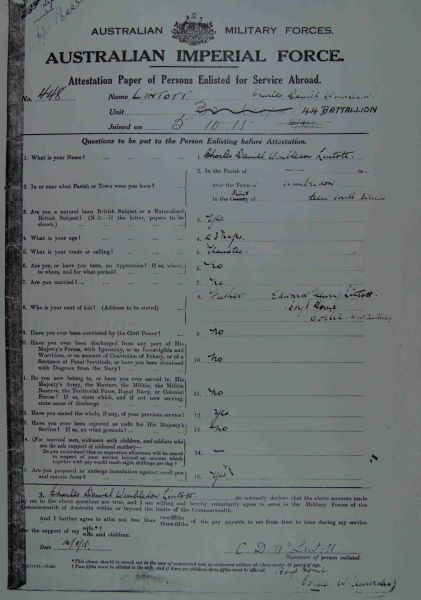 AUSTRALIAN MILITARY FORCES.
AUSTRALIAN IMPERIAL FORCE.
Attestation Paper of Persons Enlisted for Service Abroad.
No. 448 Name LINTOTT Charles Daniel
Unit 44 BATTALION
Joined on 5 10 15
Questions to be put to the Person Enlisting before Attestation.
1. What is your Name? ... 1. Charles Daniel Lintott
2. In or near what Parish or Town were you born? ... 2. In the Parish of — in
near the Town of
in the County of New South Wales
3. Are you a natural born British Subject or a Naturalized
British Subject? (N.B.—If the latter, papers to be
shown.) 3. Yes
4. What is your age? 4. 23
5. What is your trade or calling? 5.
6. Are you, or have you been, an Apprentice? If so, where,
to whom, and for what period? 6. No
7. Are you married? 7. No
8. Who is your next of kin? (Address to be stated) 8. Father Edward Henry Lintott
9. Have you ever been convicted by the Civil Power? 9. No
10. Have you ever been discharged from any part of His
Majesty's Forces, with Ignominy, or as Incorrigible and
Worthless, or on account of Conviction of Felony, or of a
Sentence of Penal Servitude, or have you been dismissed
with Disgrace from the Navy? 10. No
11. Do you now belong to, or have you ever served in, His
Majesty's Army, the Marines, the Militia, the Militia
Reserve, the Territorial Force, Royal Navy, or Colonial
Forces? If so, state which, and if not now serving,
state cause of discharge 11. No
12. Have you stated the whole, if any, of your previous service? 12. Yes
13. Have you ever been rejected as unfit for His Majesty's
Service? If so, on what grounds? 13. No
14. (For married men, widowers with children, and soldiers who
are the sole support of widowed mother)—
Do you understand that no separation allowance will be issued
in respect of your service beyond an amount which
together with pay would reach eight shillings per day? 14. —
15. Are you prepared to undergo inoculation against small pox
and enteric fever? 15. Yes
I, Charles Daniel Lintott do solemnly declare that the above answers made
by me to the above questions are true, and I am willing and hereby voluntarily agree to serve in the Military Forces of the
Commonwealth of Australia within or beyond the limits of the Commonwealth.
And I further agree to allot not less than two-fifths three-fifths of the pay payable to me from time to time during my service
for the support of my wife.* wife and children.
Date C. D. W. Lintott
Signature of person enlisted.
*This clause should be struck out in the case of unmarried men or widowers without children under 16 years of age.
† Two fifths must be allotted to the wife, and if there are children three-fifths must be allotted.